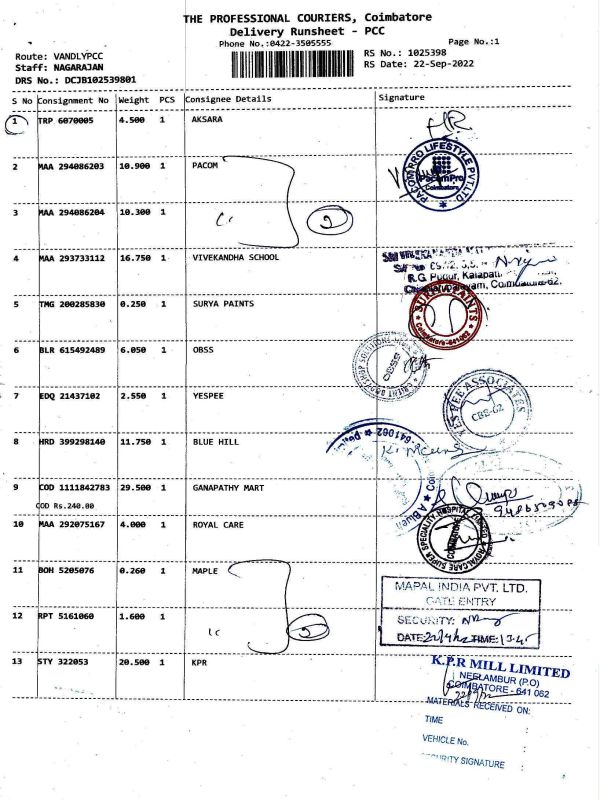 THE PROFESSIONAL COURIERS, Coimbatore
Delivery Runsheet - PCC
Phone No.:0422-3505555
Page No.:1
Route: VANDLYPCC
Staff: NAGARAJAN
DRS No.: DCJB102539801
RS No.: 1025398
RS Date: 22-Sep-2022
S No Consignment No Weight PCS Consignee Details Signature
1 TRP 6070005 4.500 1 AKSARA
2 MAA 294086203 10.900 1 PACOM
PACOMPRO LIFESTYLE PVT.LTD
PacomPro
Coimbatore
3 MAA 294086204 10.300 1
2
4 MAA 293733112 16.750 1 VIVEKANDHA SCHOOL
R.G. Pudur,
5 TMG 200285830 0.250 1 SURYA PAINTS
SURYA PAINTS
Coimbatore-641062
6 BLR 615492489 6.050 1 OBSS
OBSS
7 EDQ 21437102 2.550 1 YESPEE
YES PEE ASSOCIATES
CBE-62
8 HRD 399298140 11.750 1 BLUE HILL
641062
9 COD 1111842783 29.500 1 GANAPATHY MART
COD Rs.240.00
10 MAA 292075167 4.000 1 ROYAL CARE
ROYALCARE SUPER SPECIALITY HOSPITAL LIMITED
COIMBATORE
11 BOH 5205076 0.260 1 MAPLE
MAPAL INDIA PVT. LTD.
GATE ENTRY
12 RPT 5161060 1.600 1
SECURITY:
DATE: TIME:
13 STY 322053 20.500 1 KPR
K.P.R MILL LIMITED
NEELAMBUR (P.O)
COIMBATORE - 641 062
MATERIALS RECEIVED ON:
TIME :
VEHICLE No. :
SECURITY SIGNATURE :